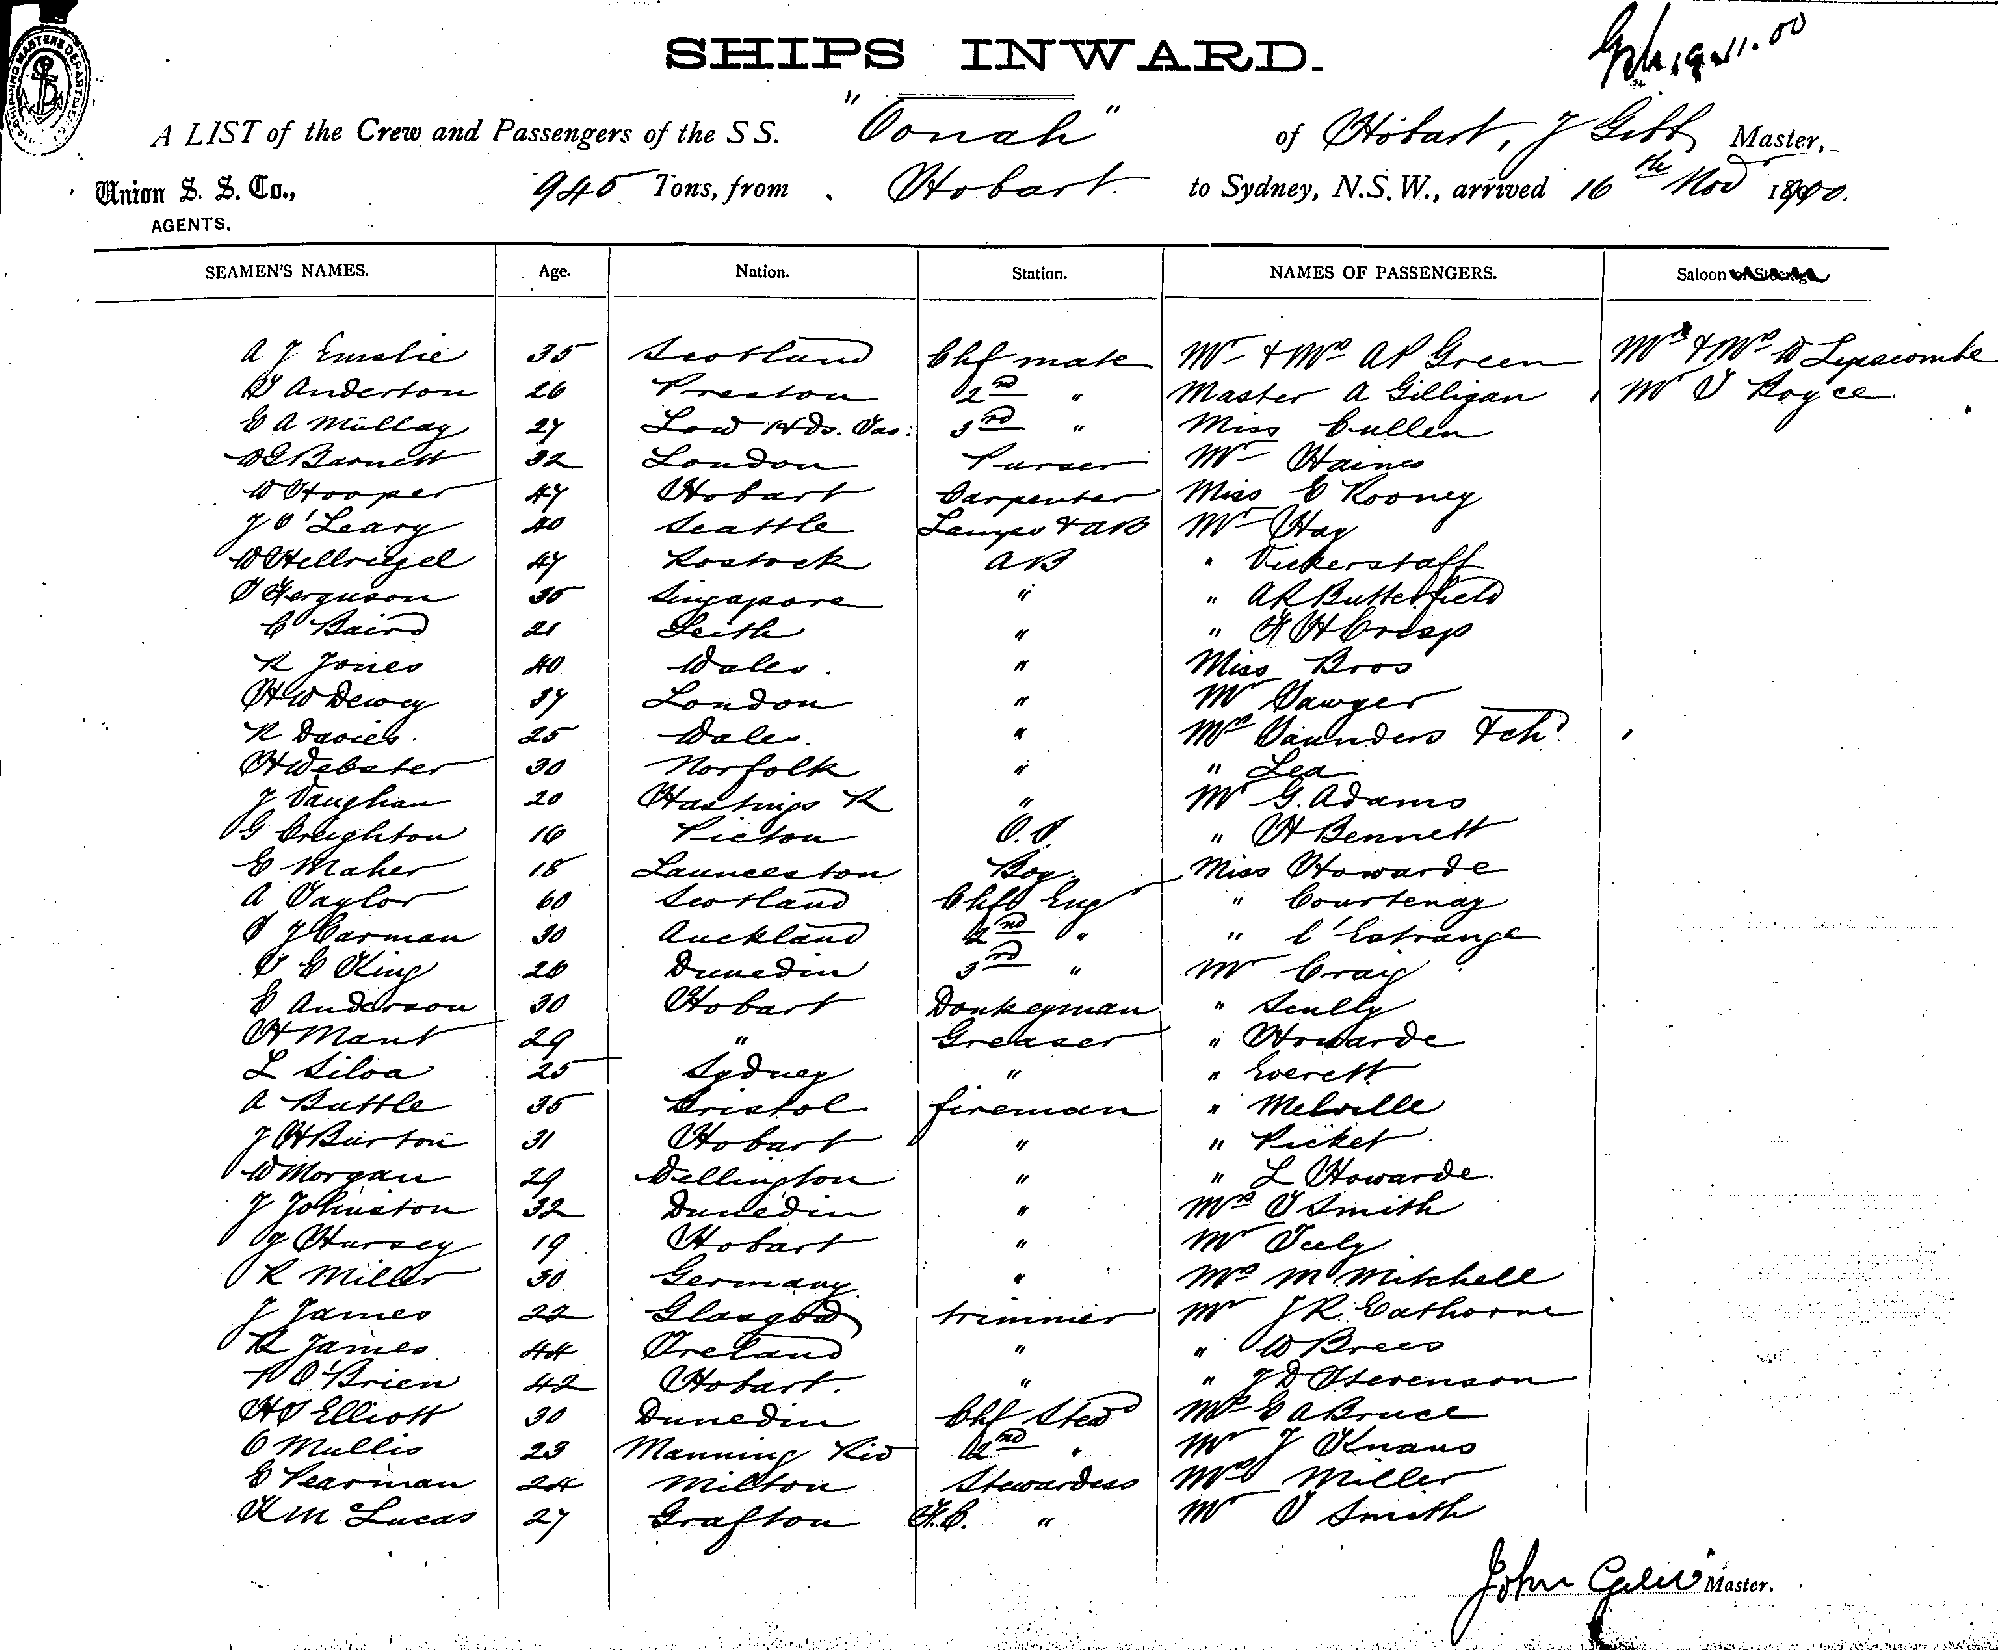 SHIPS INWARD.
A LIST of the Crew and Passengers of the S S. "Oonah" of Hobart, J Gibb Master,
Union S. S. Co., 945 Tons, from Hobart to Sydney, N.S.W., arrived 16th Nov 1900.
AGENTS.
SEAMEN'S NAMES. Age. Nation. Station. NAMES OF PASSENGERS. Saloon
A J Emslie 35 Scotland Chf mate Mr & Mrs A P Green Mr & Mrs W Lipscombe
Anderton 26 Preston 2nd " Master A Gilligan Mr T Royce
E A Mullay 27 Low Hds. Tas: 3rd " Miss Cullen
Barnett 32 London Purser Mr Haines
W Hooper 47 Hobart Carpenter Miss E Rooney
J O'Leary 40 Seattle Lamps & AB Mr Hay
W Hellriegel 47 Rostock AB " Vickerstaff
T Ferguson 35 Singapore " " A R Butterfield
C Baird 21 Leith " " F H Crisp
R Jones 40 Wales. " Miss Bros
H W Dewey 37 London " Mr Sawyer
R Davies. 25 Wales. " Mrs Saunders & chd
H Webster 30 Norfolk " " Lea
J Vaughan 20 Hastings R " Mr G. Adams
G Creighton 16 Picton O.S. " H Bennett
E Maher 18 Launceston Boy Miss Howarde
A Taylor 60 Scotland Chf Eng " Courtenay
T J Carman 30 Auckland 2nd " " L'Estrange
E King 26 Dunedin 3rd " Mr Craig
E Anderson 30 Hobart Donkeyman " Scully
H Mant 29 " Greaser " Howarde
L Silva 25 Sydney " " Everett
A Buttle 35 Bristol fireman " Melville
J H Burton 31 Hobart " " Picket
W Morgan 29 Wellington " " L Howarde.
J Johnston 32 Dunedin " Mrs T Smith
Hursey 19 Hobart " Mr Tuly
R Miller 30 Germany " Mrs M Mitchell
J James 22 Glasgow trimmer Mr J R Cathorne
R James 44 Ireland " " W Brees
P O'Brien 42 Hobart. " " J D Stevenson
H T Elliott 30 Dunedin Chf Stewd E A Bruce
C Mullis 23 Manning Riv 2nd " Mr J Knaus
E Pearman 24 Milton Stewardess Mrs Miller
K M Lucas 27 Grafton F.C. " Mr T Smith
John Master.